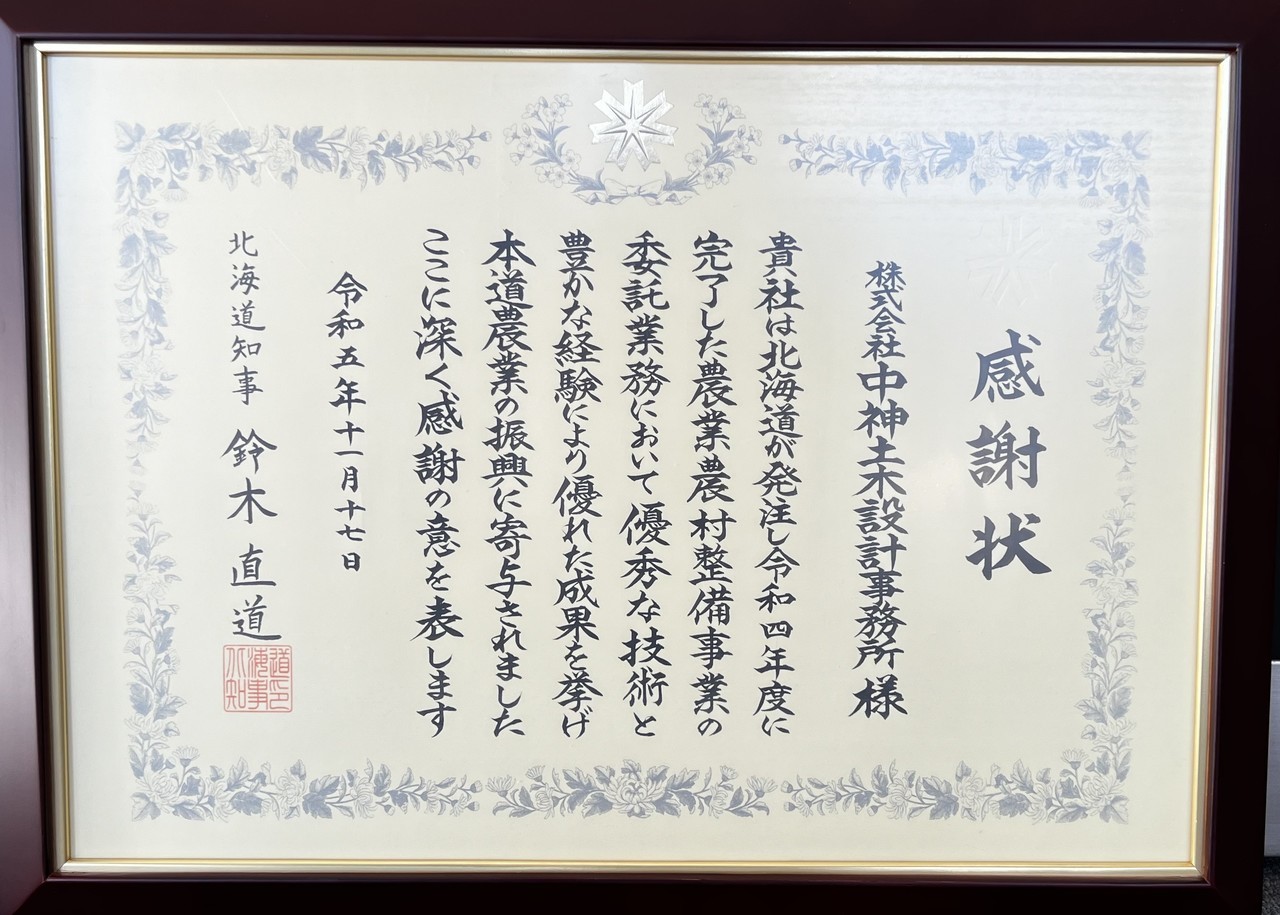 感謝状
株式会社中神土木設計事務所様
貴社は北海道が発注し令和四年度に
完了した農業農村整備事業の
委託業務において優秀な技術と
豊かな経験により優れた成果を挙げ
本道農業の振興に寄与されました
ここに深く感謝の意を表します
令和五年十一月十七日
北海道知事 鈴木直道
北海道知事印